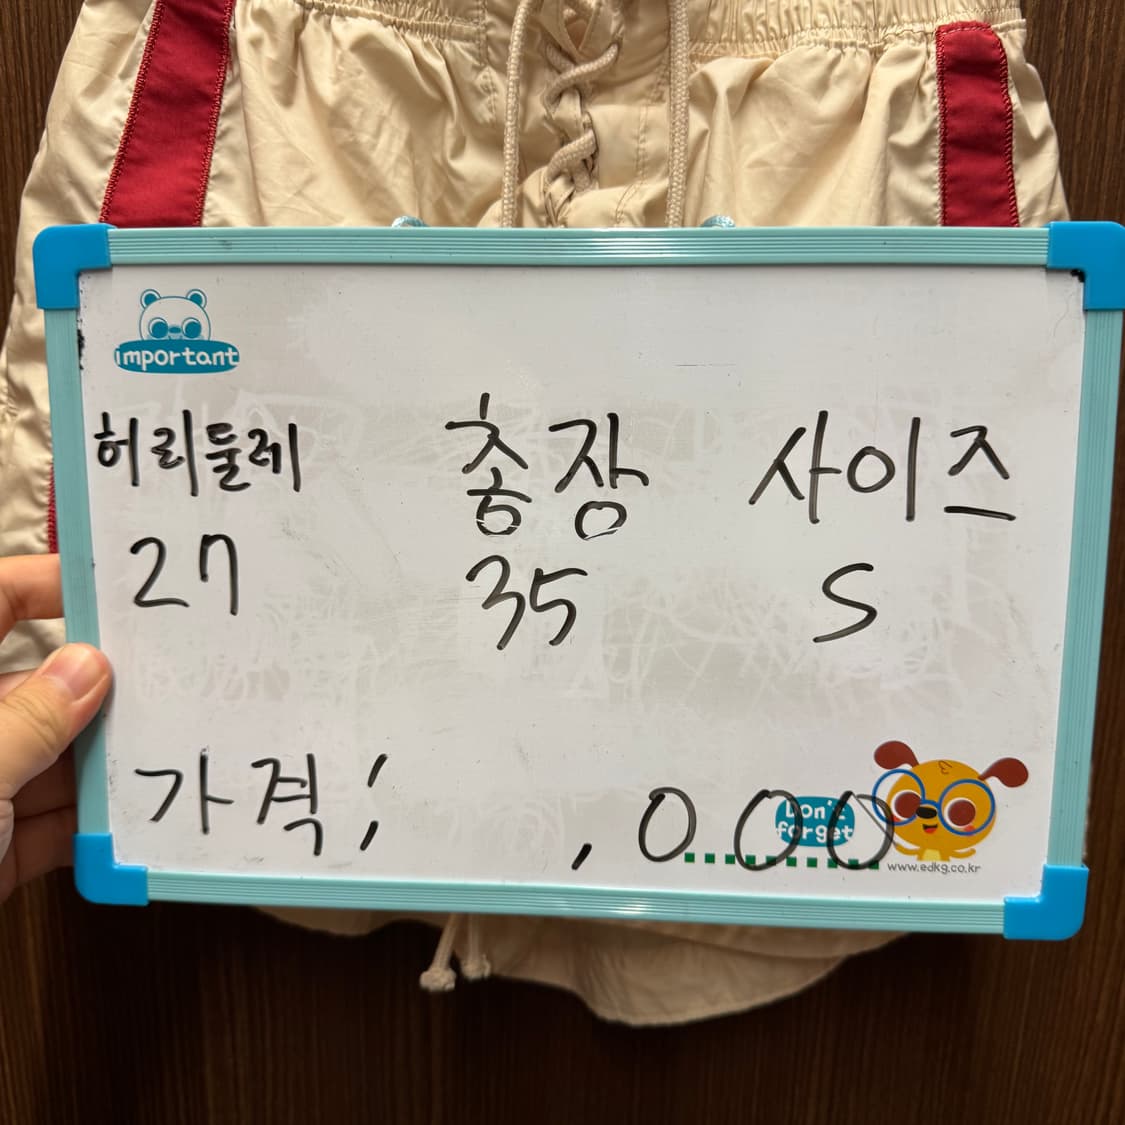 important
허리둘레 총장 사이즈
27 35 S
가격; ,000
Don't
forget
www.edkg.co.kr